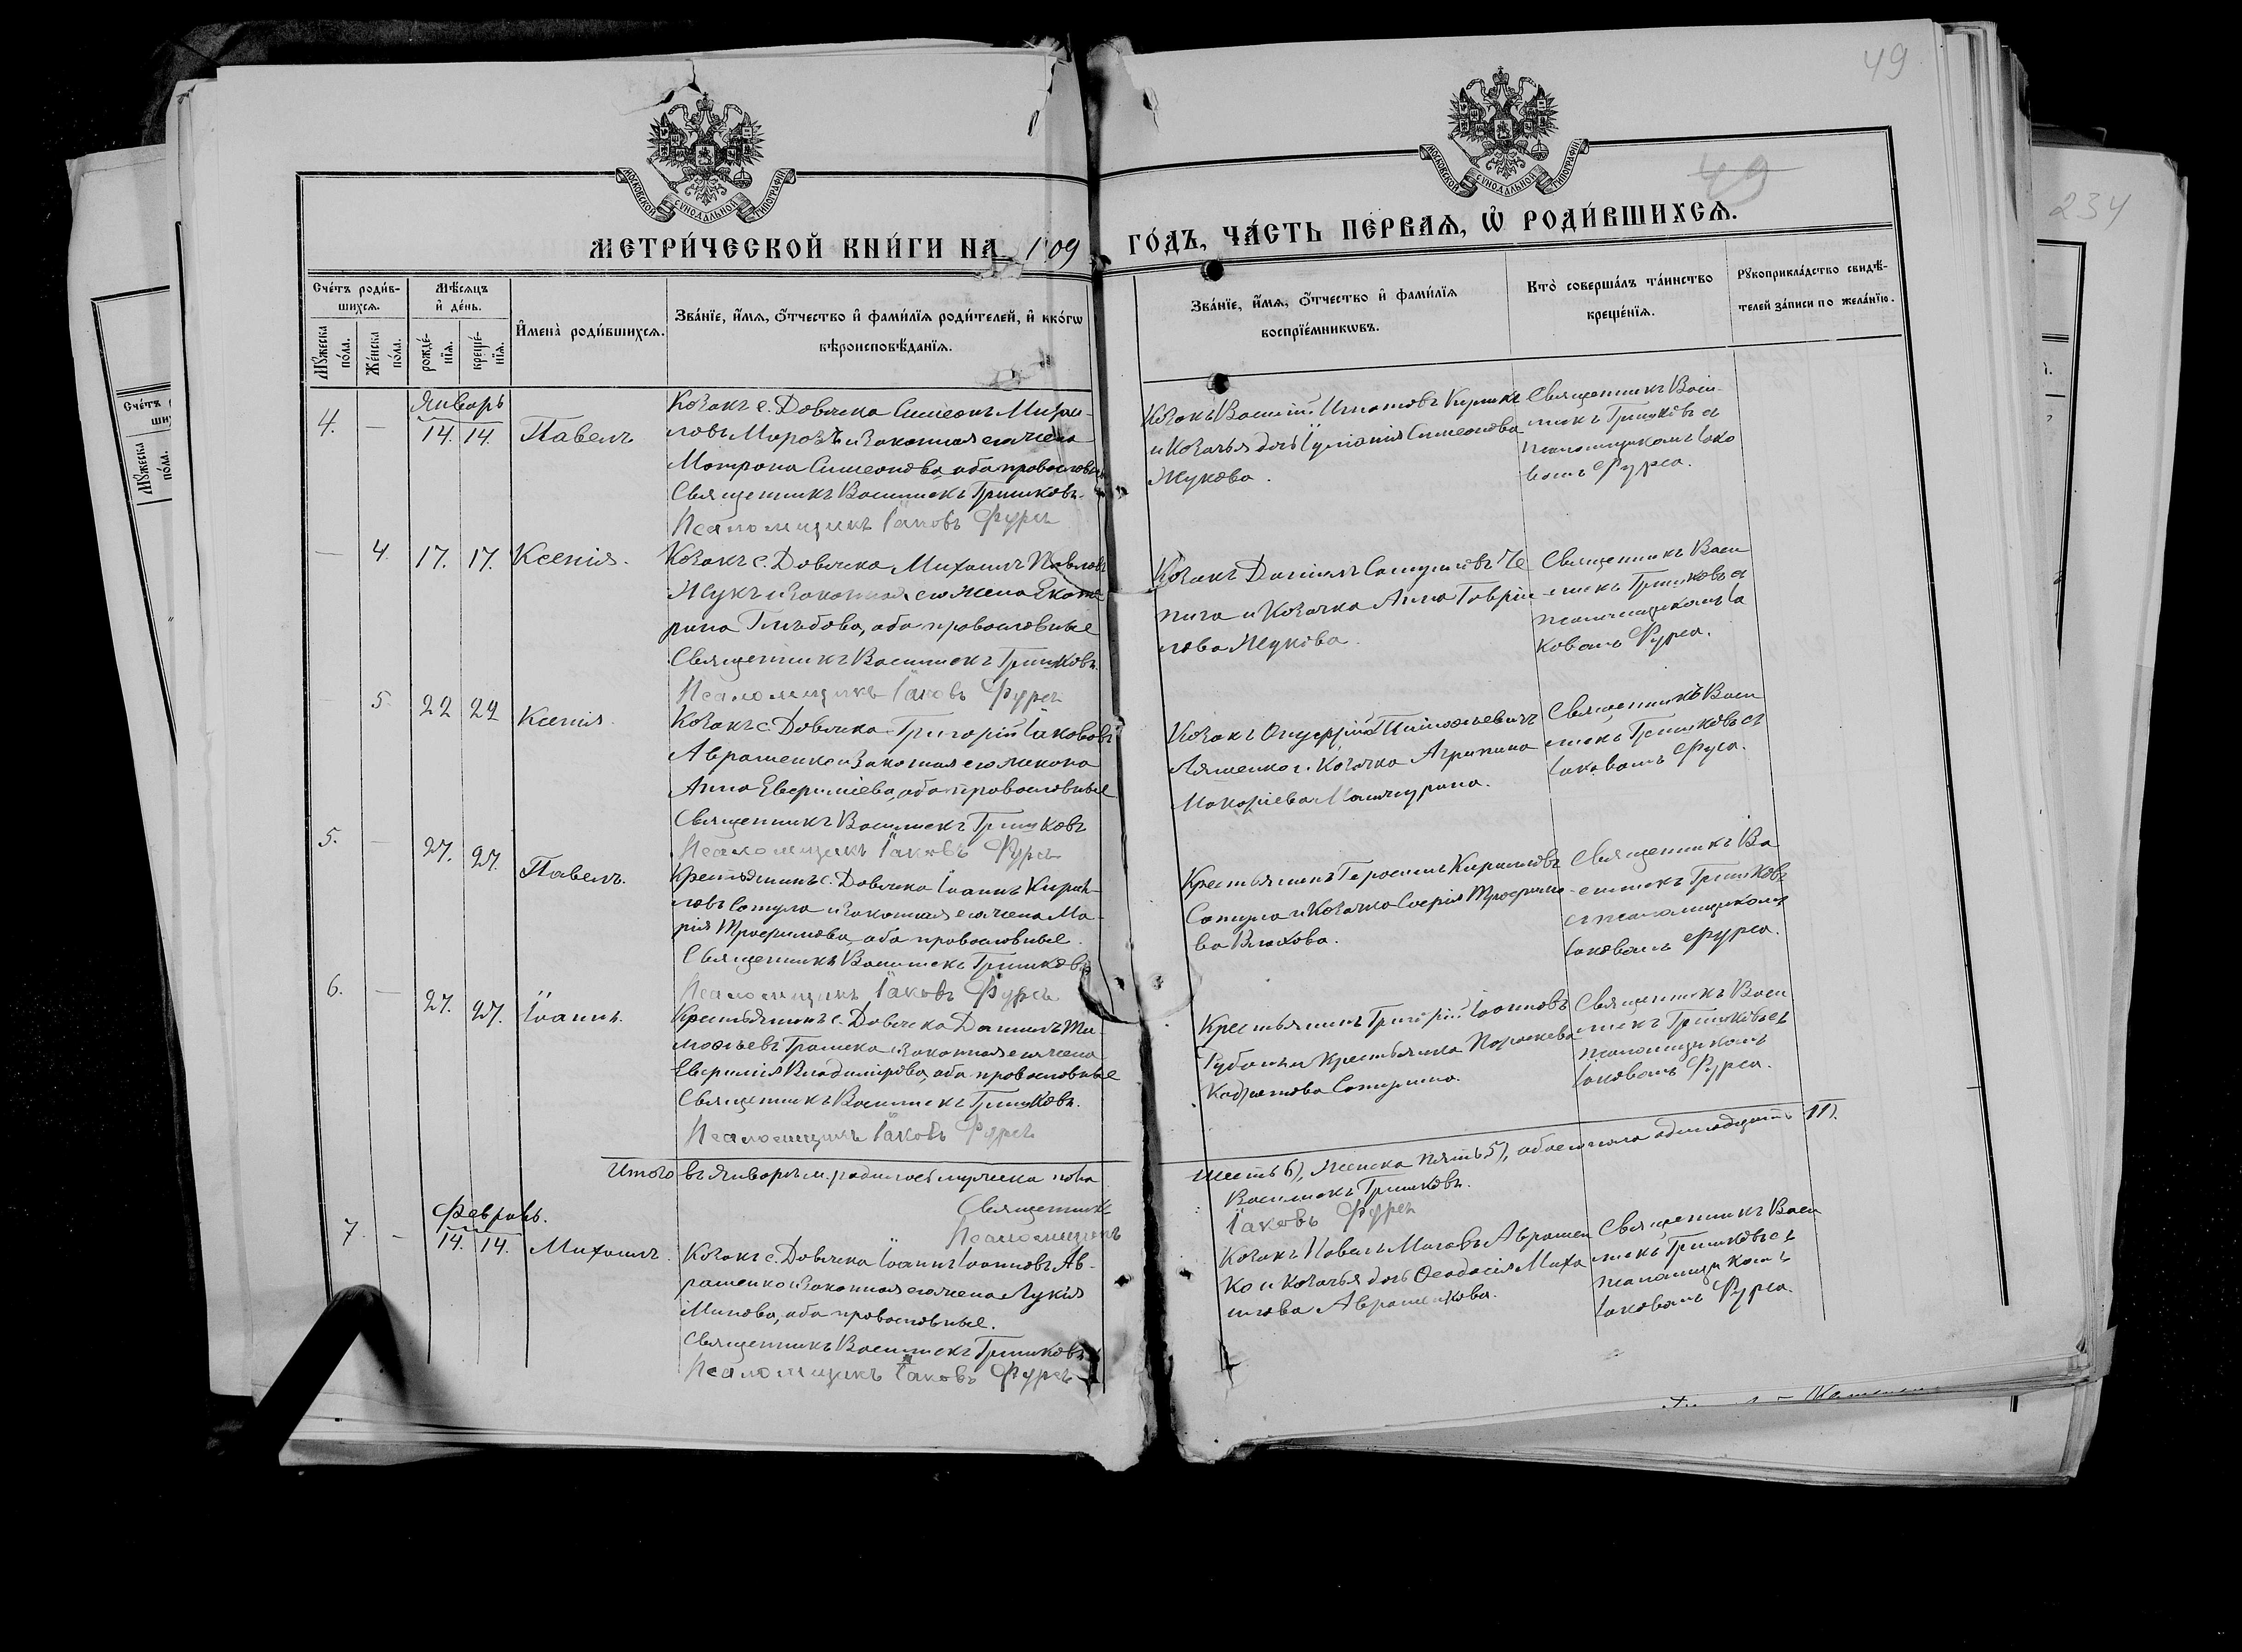 49
49
234
МОСКОВСКОЙ СУНОДАЛЬНОЙ ТИПОГРАФІИ
МОСКОВСКОЙ СУНОДАЛЬНОЙ ТИПОГРАФІИ
МЕТРИ́ЧЕСКОЙ КНИ́ГИ НА 1909 ГО́ДЪ, ЧА́СТЬ ПЕ́РВАѦ, Ѡ҆ РОДИ́ВШИХСѦ.
Сче́тъ роди́в-
шихсѧ.
Мꙋ́жеска по́ла.
Же́нска по́ла.
Мѣ́сѧцъ
и҆ де́нь.
рожде́-
нїѧ.
креще́-
нїѧ.
И҆мена̀ роди́вшихсѧ.
Зва́нїе, и҆́мѧ, ѻ҆́тчество и҆ фами́лїѧ роди́телей, и҆ како́гѡ
вѣроисповѣ́данїѧ.
Зва́нїе, и҆́мѧ, ѻ҆́тчество и҆ фами́лїѧ
воспрїе́мникѡвъ.
Кто̀ соверша́лъ та́инство
креще́нїѧ.
Рꙋкоприкла́дство свидѣ́-
телей за́писи по жела́нїю.
Январь
4. — 14. 14. Павелъ
Козакъ с. Довжека Симеонъ Михаи-
ловъ Морозъ и законная его жена
Матрона Симеонова, оба православные
Священникъ Василискъ Гришковъ.
Псаломщикъ Іаковъ Фурсъ
Козакъ Василій Игнатовъ Куликъ
и Козачья дочь Іуліанія Симеонова
Жукова.
Священникъ Васи-
лискъ Гришковъ съ
псаломщикомъ Іако
вомъ Фурса.
— 4. 17. 17. Ксенія.
Козакъ с. Довжека Михаилъ Павловъ
Жукъ и законная его жена Екате
рина Глѣбова, оба православные
Священникъ Василискъ Гришковъ.
Псаломщикъ Іаковъ Фурсъ
Козакъ Даніилъ Самуиловъ Че
пига и Козачка Анна Гаврии
лова Жукова.
Священникъ Васи
лискъ Гришковъ съ
псаломщикомъ Іа
ковомъ Фурса.
5 22 22 Ксенія.
Козакъ с. Довжека Григорій Іакововъ
Аврашенко и законная его жена
Анна Евфиміева, оба православные
Священникъ Василискъ Гришковъ
Псаломщикъ Іаковъ Фурсъ
Козакъ Онуфрій Тимофеевичъ
Ляшенко и Козачка Агрипина
Макаріева
Священникъ Васи
лискъ Гришковъ съ
Іаковомъ Фурса.
5. — 27. 27. Павелъ.
Крестьянинъ с. Довжека Іоаннъ Кирил-
ловъ Сатула и законная его жена Ма-
рія Трофимова, оба православные.
Священникъ Василискъ Гришковъ
Псаломщикъ Іаковъ Фурсъ
Крестьянинъ Герасимъ Кирилловъ
Сатула и Козачка Софія Трофимо-
ва Влахова.
Священникъ Ва
силискъ Гришковъ
съ псаломщикомъ
Іаковомъ Фурса.
6. — 27. 27. Іоаннъ.
Крестьянинъ с. Довжека Даніилъ Ти-
мофеевъ Грамека и законная его жена
Евфимія Владимірова, оба православные
Священникъ Василискъ Гришковъ.
Псаломщикъ Іаковъ Фурсъ
Крестьянинъ Григорій Іоанновъ
и Крестьянка Параскева
Кодратова Сатулина.
Священникъ Васи
лискъ Гришковъ съ
псаломщикомъ
Іаковомъ Фурса.
Итого въ Январѣ м. родилось мужеска пола шесть 6), женска пять 5), обоего пола одиннадцать 11).
Священникъ Василискъ Гришковъ.
Псаломщикъ Іаковъ Фурсъ
Февраль.
7. - 14. 14. Михаилъ.
Козакъ с. Довжека Іоаннъ Іоанновъ Ав-
рашенко и законная его жена Лукія
Минова, оба православные.
Священникъ Василискъ Гришковъ
Псаломщикъ Іаковъ Фурсъ
Козакъ Павелъ Аврашен
ко и Козачья дочь Феодосія Миха
илова Аврашенкова.
Священникъ Васи
лискъ Гришковъ съ
псаломщикомъ
Іаковомъ Фурса.